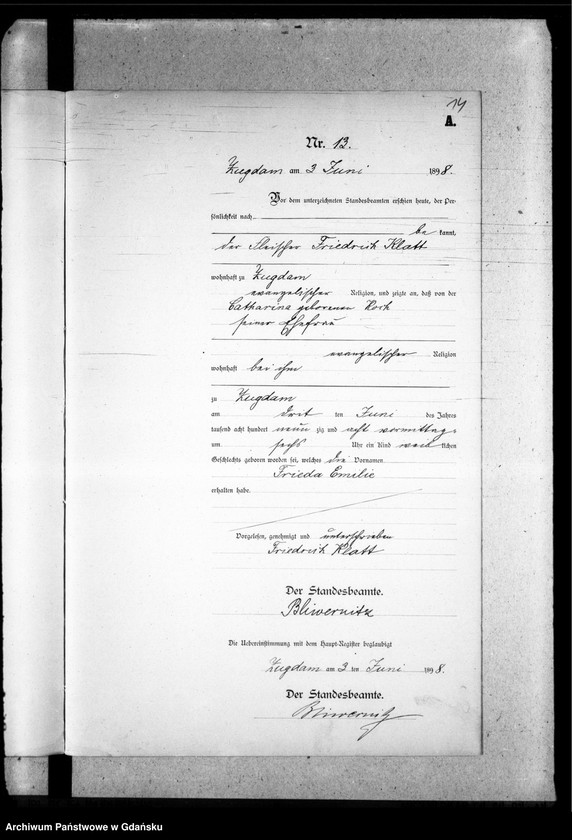 14
A.
Nr. 13.
Zugdam am 3 Juni 1898.
Vor dem unterzeichneten Standesbeamten erschien heute, der Per-
sönlichkeit nach,
be kannt,
der Fleischer Friedrich Klatt
wohnhaft zu Zugdam
evangelischer Religion, und zeigte an, daß von der
Catharina geborenen Kork
seiner Ehefrau
evangelischer Religion
wohnhaft bei ihm
zu Zugdam
am drei ten Juni des Jahres
tausend acht hundert neun zig und acht vormittags
um sechs Uhr ein Kind weib lichen
Geschlechts geboren worden sei, welches die Vornamen
Frieda Emilie
erhalten habe.
Vorgelesen, genehmigt und unterschrieben
Friedrich Klatt
Der Standesbeamte.
Bliwernitz
Die Uebereinstimmung mit dem Haupt-Register beglaubigt
Zugdam am 3 ten Juni 1898.
Der Standesbeamte.
Bliwernitz
Archiwum Państwowe w Gdańsku